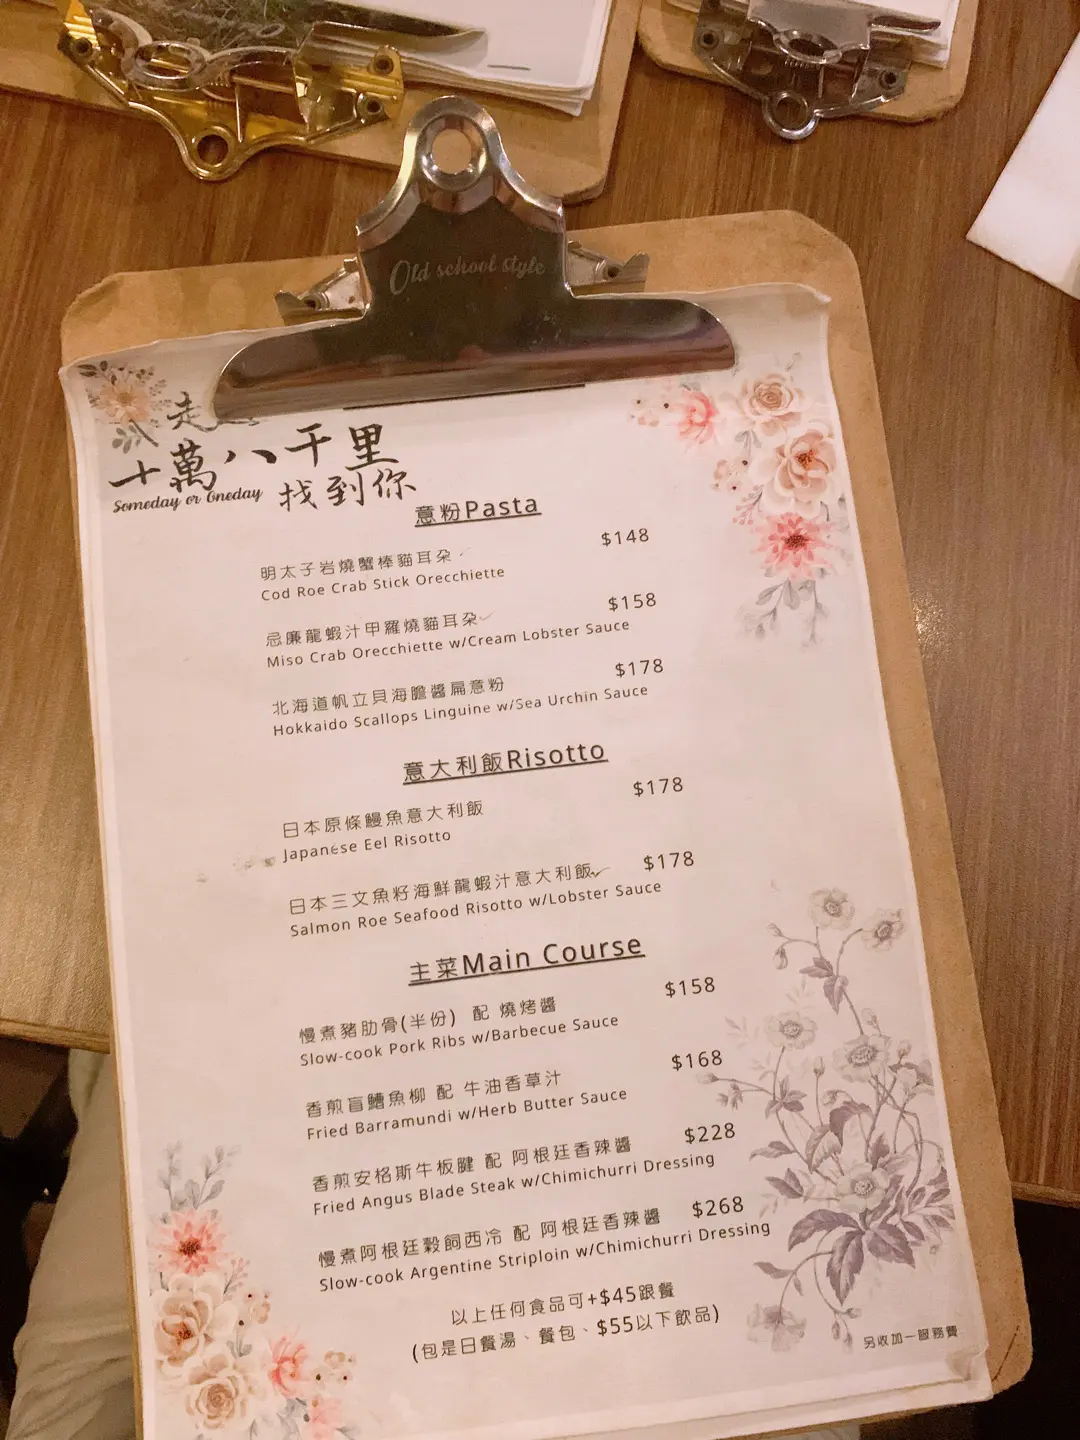 Old school style
走
十萬八千里
Someday or Oneday 找到你
意粉Pasta
明太子岩燒蟹棒貓耳朵 $148
Cod Roe Crab Stick Orecchiette
忌廉龍蝦汁甲羅燒貓耳朵 $158
Miso Crab Orecchiette w/Cream Lobster Sauce
北海道帆立貝海膽醬扁意粉 $178
Hokkaido Scallops Linguine w/Sea Urchin Sauce
意大利飯Risotto
日本原條鰻魚意大利飯 $178
Japanese Eel Risotto
日本三文魚籽海鮮龍蝦汁意大利飯 $178
Salmon Roe Seafood Risotto w/Lobster Sauce
主菜Main Course
慢煮豬肋骨(半份) 配 燒烤醬 $158
Slow-cook Pork Ribs w/Barbecue Sauce
香煎盲鰽魚柳 配 牛油香草汁 $168
Fried Barramundi w/Herb Butter Sauce
香煎安格斯牛板腱 配 阿根廷香辣醬 $228
Fried Angus Blade Steak w/Chimichurri Dressing
慢煮阿根廷穀飼西冷 配 阿根廷香辣醬 $268
Slow-cook Argentine Striploin w/Chimichurri Dressing
以上任何食品可+$45跟餐
(包是日餐湯、餐包、$55以下飲品)
另收加一服務費